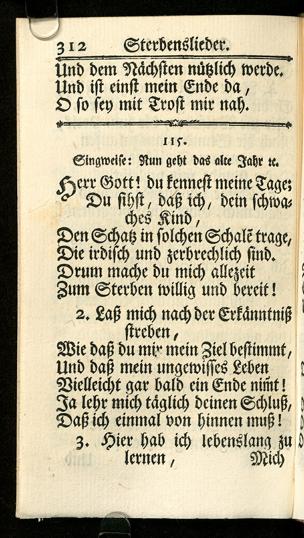 312 Sterbenslieder.
Und dem Nächsten nützlich werde.
Und ist einst mein Ende da,
O so sey mit Trost mir nah.
115.
Singweise: Nun geht das alte Jahr ꝛc.
Herr Gott! du kennest meine Tage;
Du sihst, daß ich, dein schwa-
ches Kind,
Den Schatz in solchen Schalē trage,
Die irdisch und zerbrechlich sind.
Drum mache du mich allezeit
Zum Sterben willig und bereit!
2. Laß mich nach der Erkänntniß
streben,
Wie daß du mir mein Ziel bestimmt,
Und daß mein ungewisses Leben
Vielleicht gar bald ein Ende nim̄t!
Ja lehr mich täglich deinen Schluß,
Daß ich einmal von hinnen muß!
3. Hier hab ich lebenslang zu
lernen, Mich